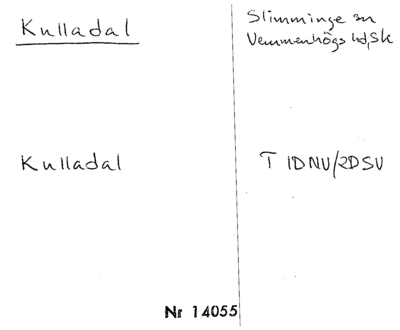 Kulladal
Slimminge sn
Vemmenhögs hd, Sk
Kulladal
T 1DNV/2DSV
Nr 14055